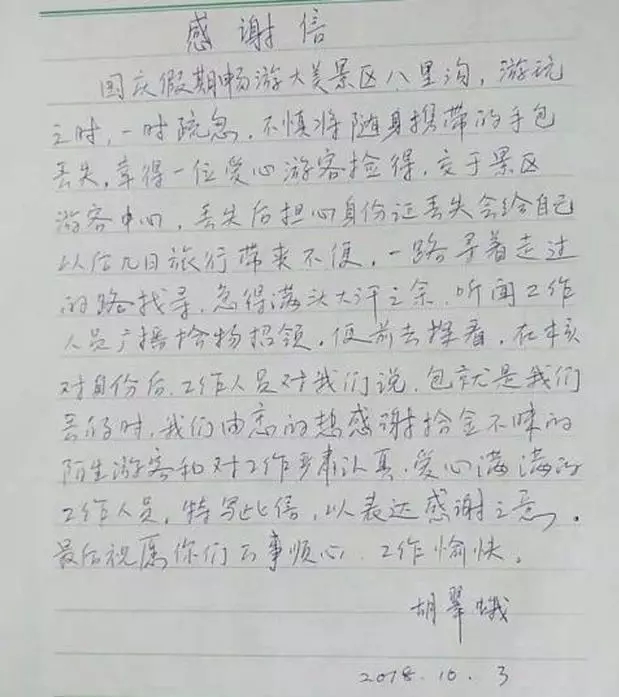 感谢信
国庆假期畅游大美景区八里沟，游玩
之时，一时疏忽，不慎将随身携带的手包
丢失，幸得一位爱心游客捡得，交于景区
游客中心，丢失后担心身份证丢失会给自己
以后几日旅行带来不便，一路寻着走过
的路找寻，急得满头大汗之余，听闻工作
人员广播拾物招领，便前去探看，在核
对身份后，工作人员对我们说，包就是我们
丢的时，我们由衷的想感谢拾金不昧的
陌生游客和对工作严肃认真，爱心满满的
工作人员，特写此信，以表达感谢之意。
最后祝愿你们万事顺心，工作愉快。
胡翠娥
2018.10.3